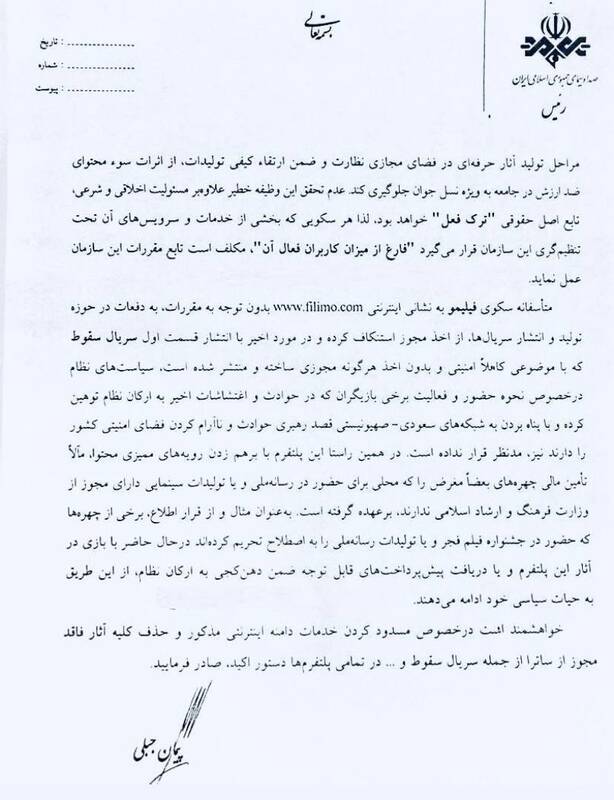 بسمه تعالی
صدا و سیمای جمهوری اسلامی ایران
رئیس
تاریخ :
شماره :
پیوست :
مراحل تولید آثار حرفه‌ای در فضای مجازی نظارت و ضمن ارتقاء کیفی تولیدات، از اثرات سوء محتوای
ضد ارزش در جامعه به ویژه نسل جوان جلوگیری کند. عدم تحقق این وظیفه خطیر علاوه‌بر مسئولیت اخلاقی و شرعی،
تابع اصل حقوقی "ترک فعل" خواهد بود، لذا هر سکویی که بخشی از خدمات و سرویس‌های آن تحت
تنظیم‌گری این سازمان قرار می‌گیرد "فارغ از میزان کاربران فعال آن"، مکلف است تابع مقررات این سازمان
عمل نماید.
متأسفانه سکوی فیلیمو به نشانی اینترنتی www.filimo.com بدون توجه به مقررات، به دفعات در حوزه
تولید و انتشار سریال‌ها، از اخذ مجوز استنکاف کرده و در مورد اخیر با انتشار قسمت اول سریال سقوط
که با موضوعی کاملاً امنیتی و بدون اخذ هرگونه مجوزی ساخته و منتشر شده است، سیاست‌های نظام
درخصوص نحوه حضور و فعالیت برخی بازیگران که در حوادث و اغتشاشات اخیر به ارکان نظام توهین
کرده و با پناه بردن به شبکه‌های سعودی-صهیونیستی قصد رهبری حوادث و ناآرام کردن فضای امنیتی کشور
را دارند نیز، مدنظر قرار نداده است. در همین راستا این پلتفرم با برهم زدن رویه‌های ممیزی محتوا، مآلاً
تأمین مالی چهره‌های بعضاً مغرض را که محلی برای حضور در رسانه‌ملی و یا تولیدات سینمایی دارای مجوز از
وزارت فرهنگ و ارشاد اسلامی ندارند، برعهده گرفته است. به‌عنوان مثال و از قرار اطلاع، برخی از چهره‌ها
که حضور در جشنواره فیلم فجر و یا تولیدات رسانه‌ملی را به اصطلاح تحریم کرده‌اند درحال حاضر با بازی در
آثار این پلتفرم و یا دریافت پیش‌پرداخت‌های قابل توجه ضمن دهن‌کجی به ارکان نظام، از این طریق
به حیات سیاسی خود ادامه می‌دهند.
خواهشمند است درخصوص مسدود کردن خدمات دامنه اینترنتی مذکور و حذف کلیه آثار فاقد
مجوز از ساترا از جمله سریال سقوط و ... در تمامی پلتفرم‌ها دستور اکید، صادر فرمایید.
پیمان جبلی